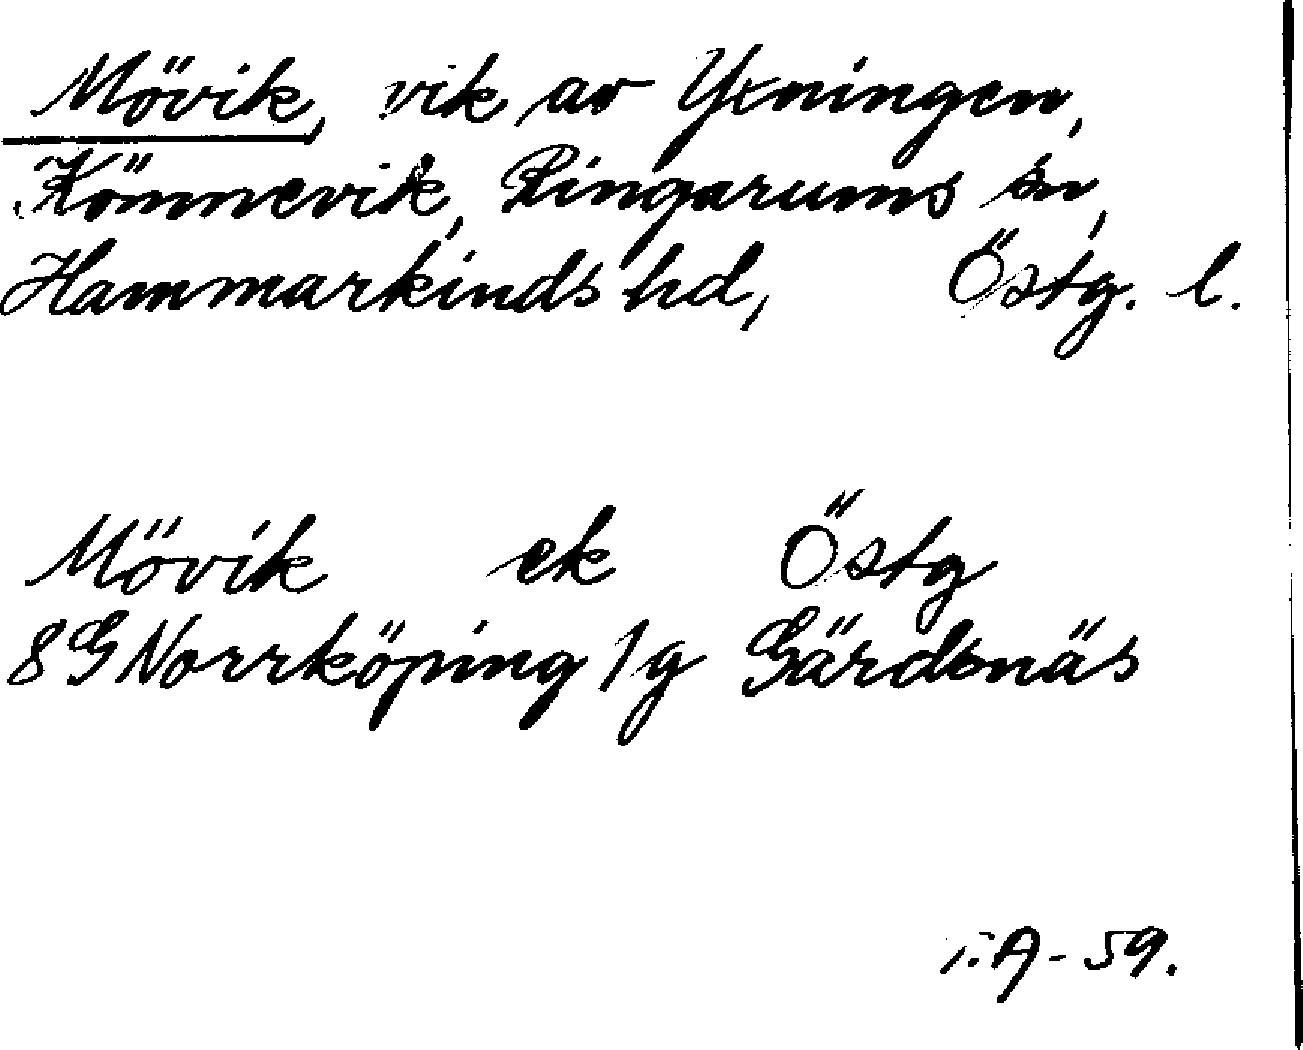 Mövik, vik av Yxningen,
Kömnevik, Ringarums sn,
Hammarkinds hd, Östg. l.
Mövik ek Östg
8G Norrköping 1g Gärdsnäs
T.A-59.